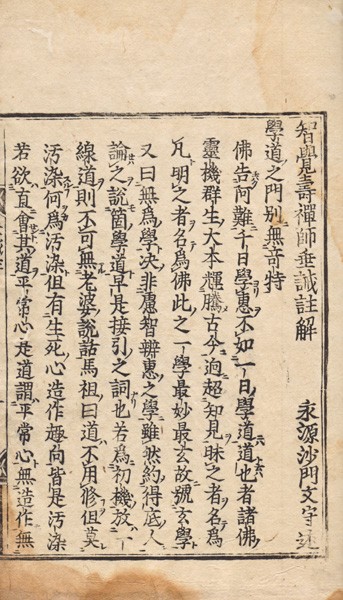 智覺壽禪師垂誡註解
永源沙門文守述
學道之門別無竒特
佛告阿難千日學惠不如一日學道道也者諸佛
靈機群生大本輝騰古今逈超知見昧之者名為
凡明之者名為佛此之一學最妙最玄故號玄學
又曰無為學決非慮智辨惠之學雖然約得底人
論之說箇學道早是接引之詞也若為初機放一
線道則不可無老婆說話馬祖曰道不用修但莫
汚染何為汚染但有生死心造作趣向皆是汚染
若欲直會其道平常心是道謂平常心無造作無